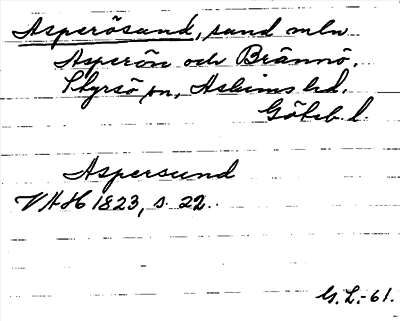 Asperösund, sund mln
Asperön och Brännö.
Styrsö sn, Askims hd.
Göteb. l.
Aspersund
VAH 1823, s. 22.
G. L.-61.